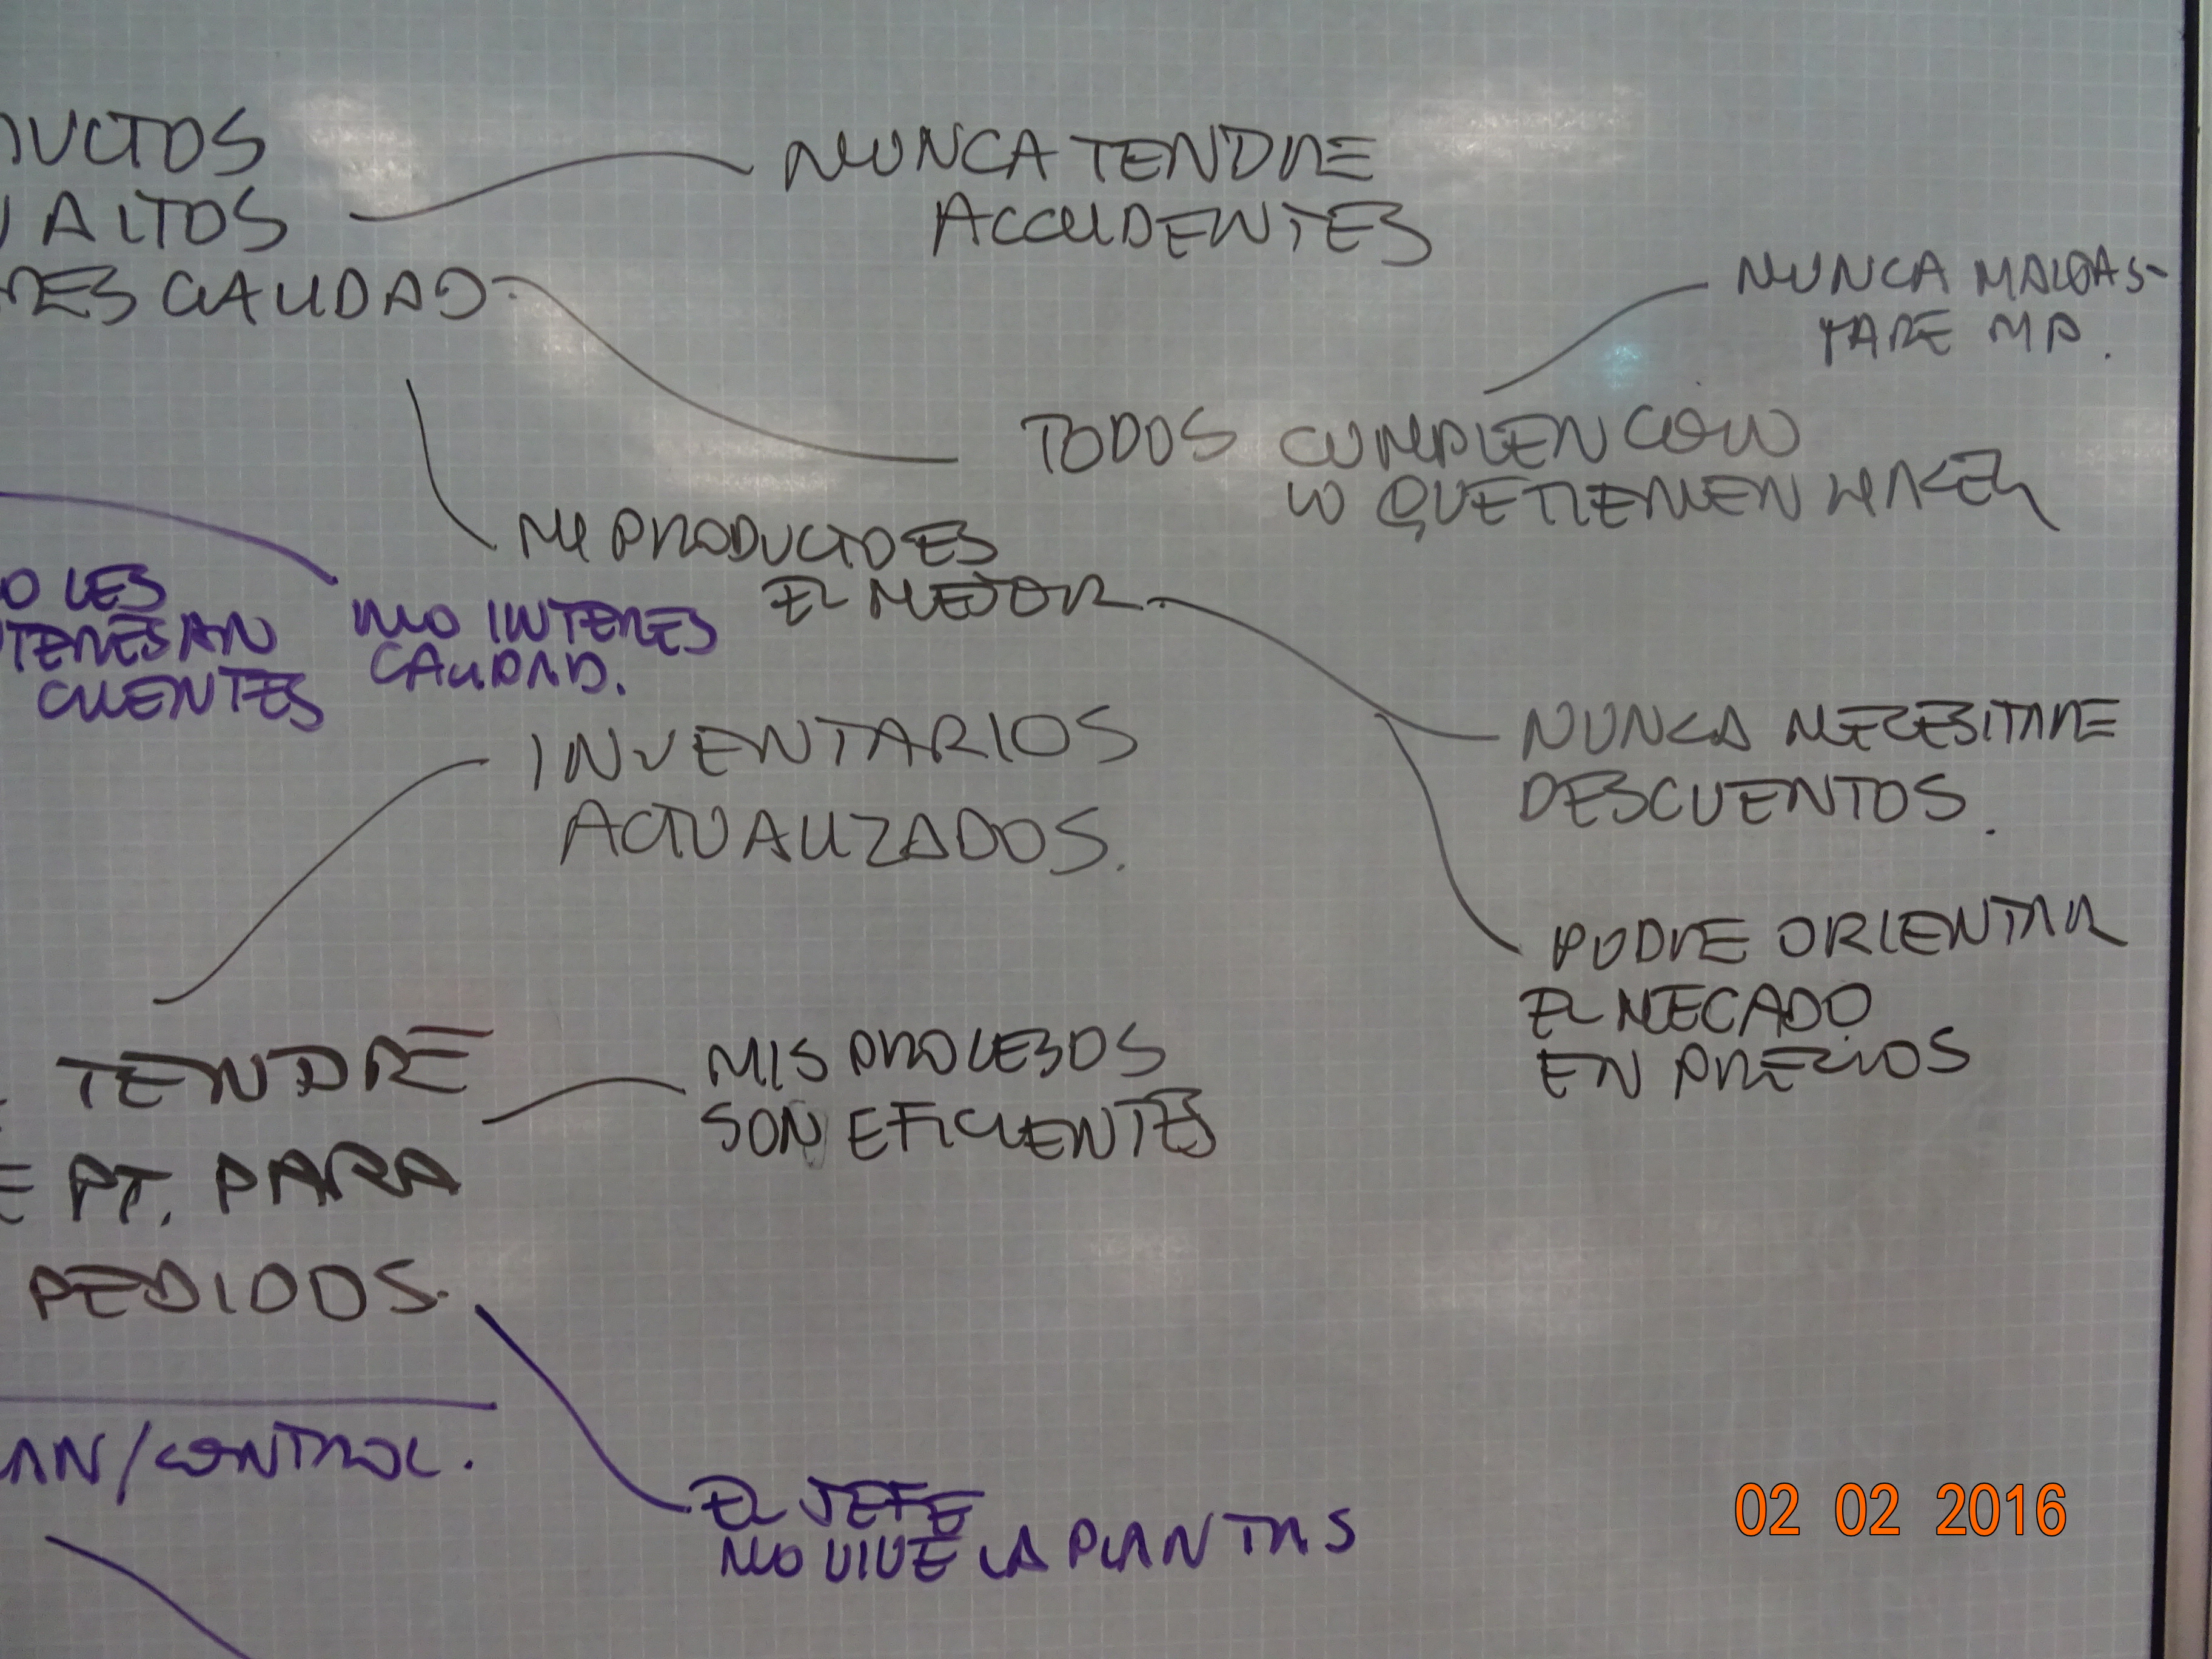 DUCTOS
N ALTOS
RES CALIDAD
NUNCA TENDRE
ACCIDENTES
NUNCA MALGAS-
TARE MP.
TODOS CUMPLEN CON
LO QUE TIENEN HACER
MI PRODUCTO ES
EL MEJOR
O LES
TERESAN
CLIENTES
NO INTERES
CALIDAD.
INVENTARIOS
ACTUALIZADOS.
NUNCA NECESITARE
DESCUENTOS.
PODRE ORIENTAR
EL MECADO
EN PRECIOS
TENDRE
E PT. PARA
PEDIDOS.
MIS PROCESOS
SON EFICIENTES
AN/CONTROL.
EL JEFE
NO VIVE LA PLANTAS
02 02 2016